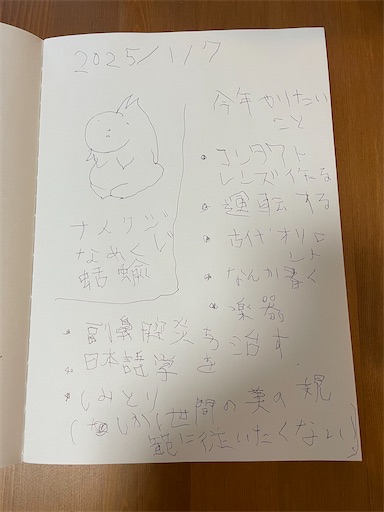 2025/1/7
ナメクジ
なめくじ
蛞蝓
今年やりたい
こと
・コンタクト
レンズ作る
・運転する
・古代オリエ
ント
・なんか書く
・楽器
・副鼻腔炎を治す
・日本語学を
・しみとり
(しかし世間の美の規
範に従いたくない)